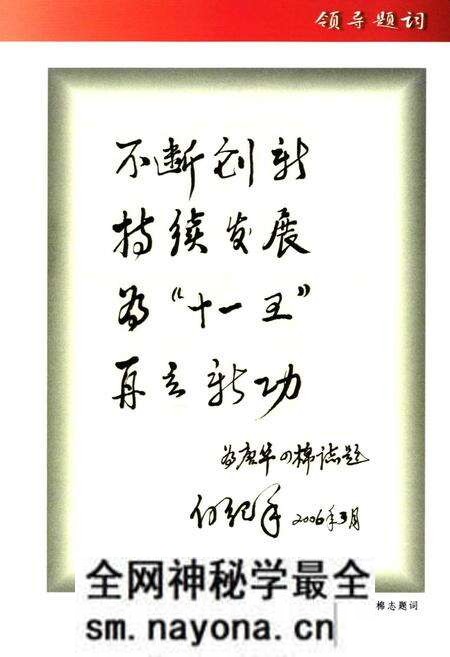 领导题词
不断创新
持续发展
为“十一五”
再立新功
为唐华四棉志题
2006年3月
全网神秘学最全
棉志题词
sm.nayona.cn